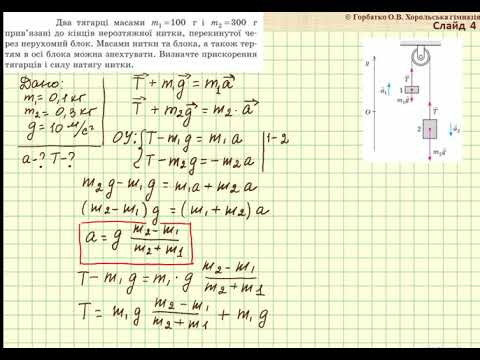 © Горбатко О.В. Хорольська гімназія
Слайд 4
Два тягарці масами m₁=100 г і m₂=300 г
прив'язані до кінців нерозтяжної нитки, перекинутої че-
рез нерухомий блок. Масами нитки та блока, а також тер-
тям в осі блока можна знехтувати. Визначте прискорення
тягарців і силу натягу нитки.
Дано:
m₁=0,1 кг
m₂=0,3 кг
g=10 м/с²
a-? T-?
T⃗ + m₁g⃗ = m₁a⃗
T⃗ + m₂g⃗ = m₂·a⃗
OY: { T-m₁g = m₁a | 1-2
T-m₂g = -m₂a
m₂g-m₁g = m₁a+m₂a
(m₂-m₁)g = (m₁+m₂)a
a = g (m₂-m₁)/(m₂+m₁)
T-m₁g = m₁·g (m₂-m₁)/(m₂+m₁)
T = m₁g (m₂-m₁)/(m₂+m₁) + m₁g
y
O
T⃗
a⃗₁
1
m₁g⃗
T⃗
2
a⃗₂
m₂g⃗